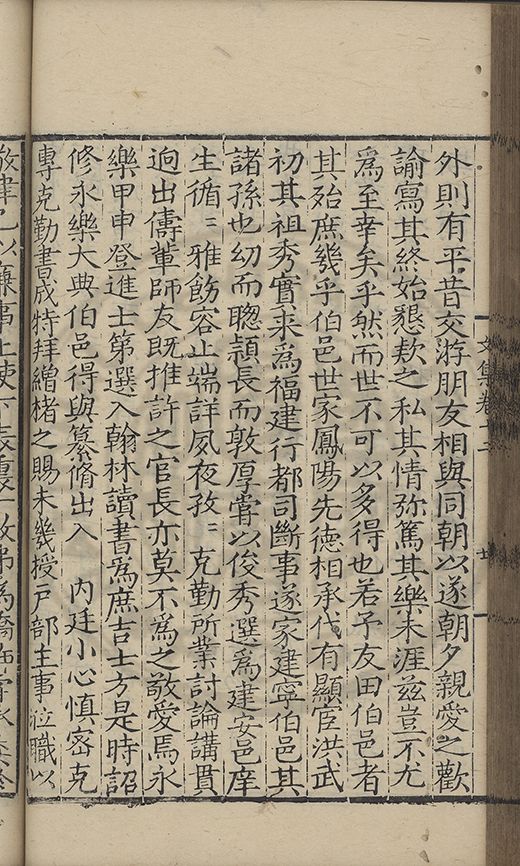 文集卷十二
外則有平昔交游朋友相與同朝以遂朝夕親愛之歡
諭寫其終始懇欵之私其情弥篤其樂未涯茲豈不尤
爲至幸矣乎然而世不可以多得也若予友田伯邑者
其殆庶幾乎伯邑世家鳳陽先德相承代有顯宦洪武
初其祖秀實来爲福建行都司斷事遂家建寧伯邑其
諸孫也幼而聦頴長而敦厚嘗以俊秀選爲建安邑庠
生循〻雅飭容止端詳夙夜孜〻克勤所業討論講貫
逈出儔軰師友既推許之官長亦莫不爲之敬愛焉永
樂甲申登進士第選入翰林讀書爲庶吉士方是時詔
修永樂大典伯邑得與纂脩出入 內廷小心慎宻克
專克勤書成特拜繒楮之賜未幾授戸部主事涖職以